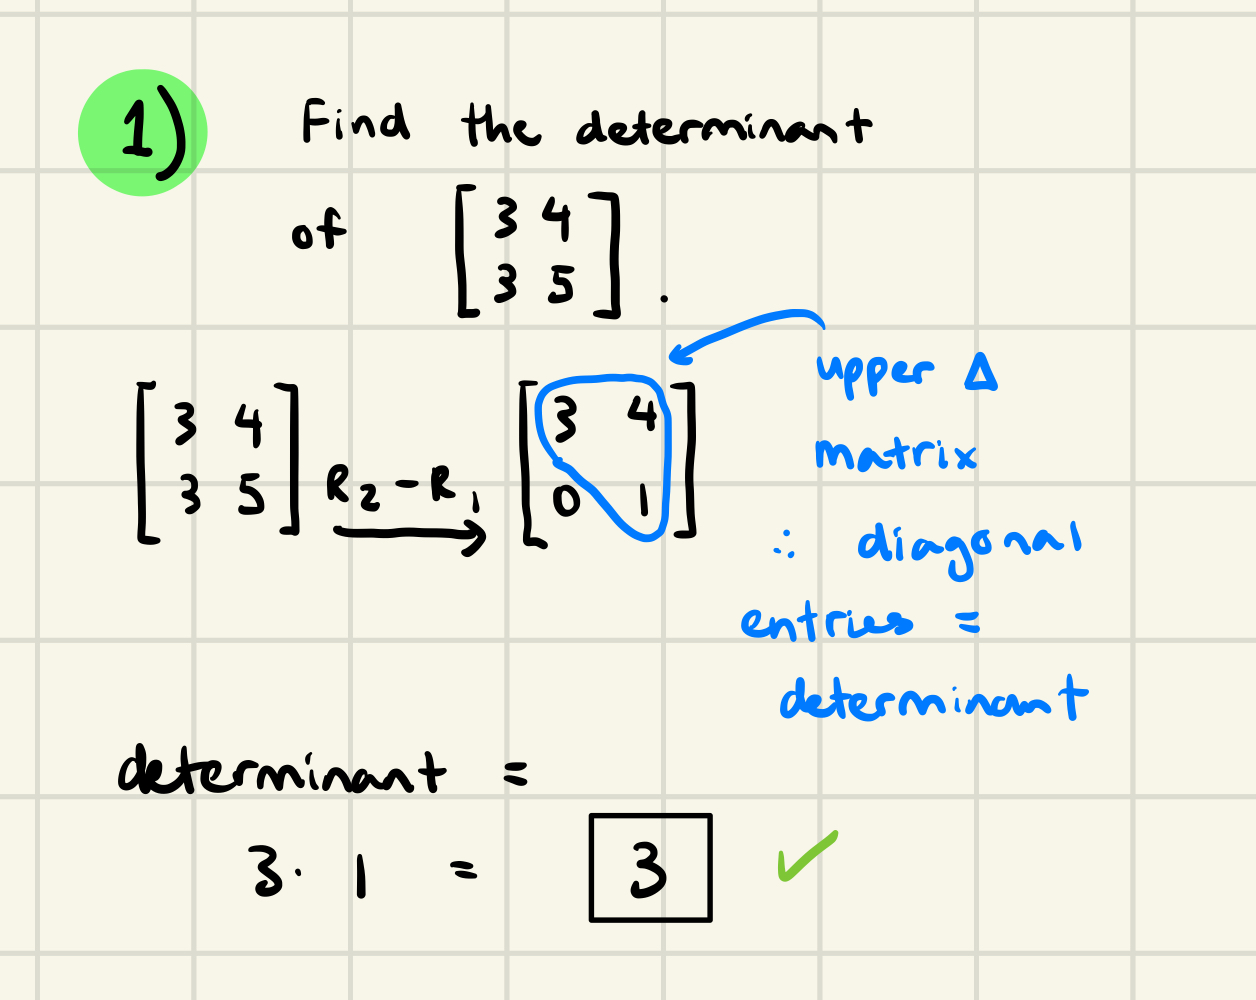 1) Find the determinant
of [ 3 4
3 5 ] .
[ 3 4
3 5 ] R₂ - R₁ → [ 3 4
0 1 ]
upper Δ
matrix
∴ diagonal
entries =
determinant
determinant =
3 · 1 = 3 ✓